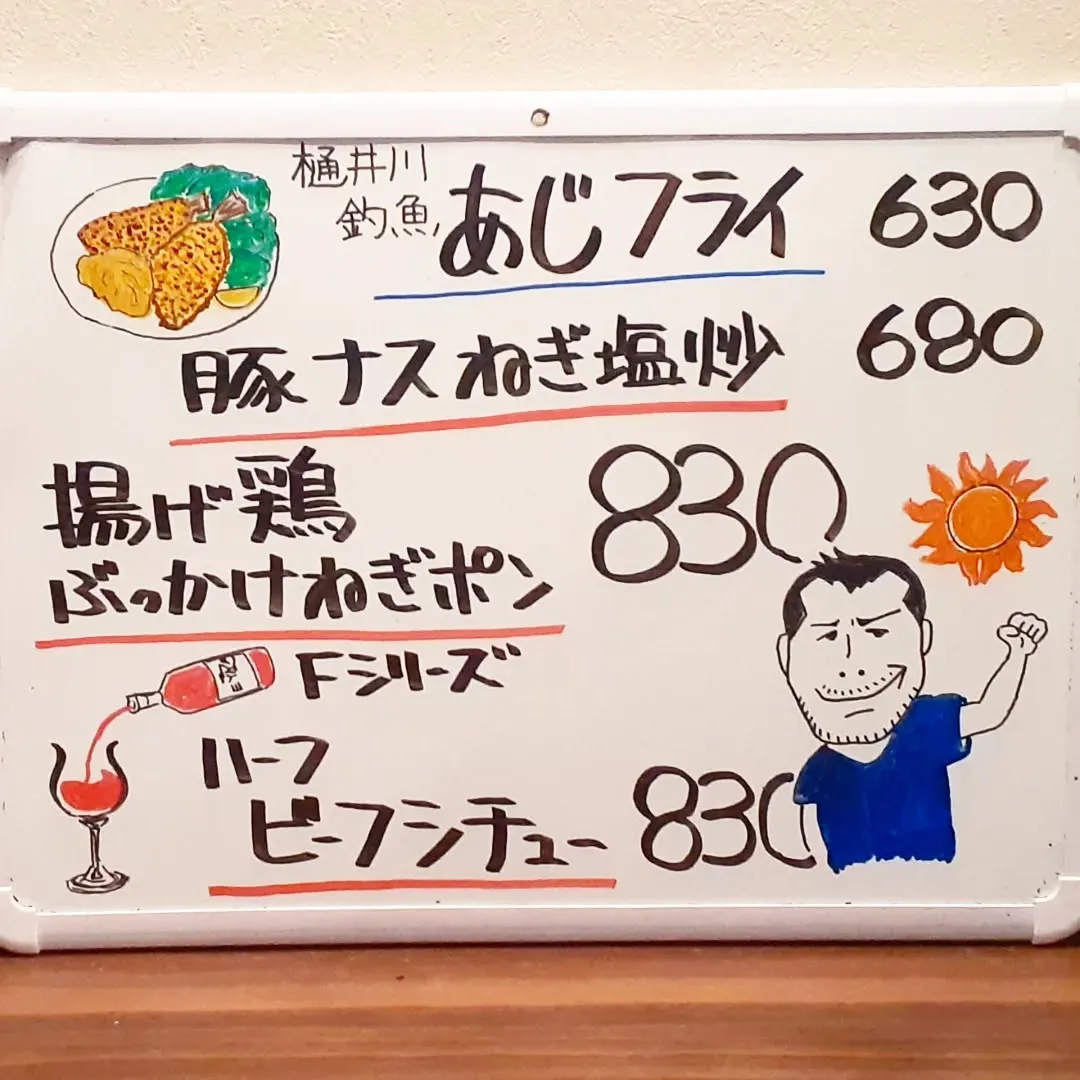 樋井川
釣魚
あじフライ 630
豚ナスねぎ塩炒 680
揚げ鶏 830
ぶっかけねぎポン
Fシリーズ
ハーフ
ビーフシチュー 830